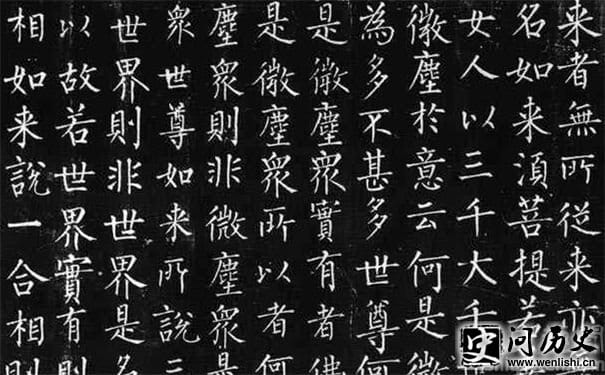 来者無所從来亦
名如来須菩提若
女人以三千大千
微塵於意云何是微
為多不甚多世尊何
是微塵眾實有者佛
是微塵眾所以者何
塵眾則非微塵眾是
眾世尊如来所說三
世界則非世界是名
以故若世界實有則
相如来說一合相則
问历史
www.wenlishi.cn